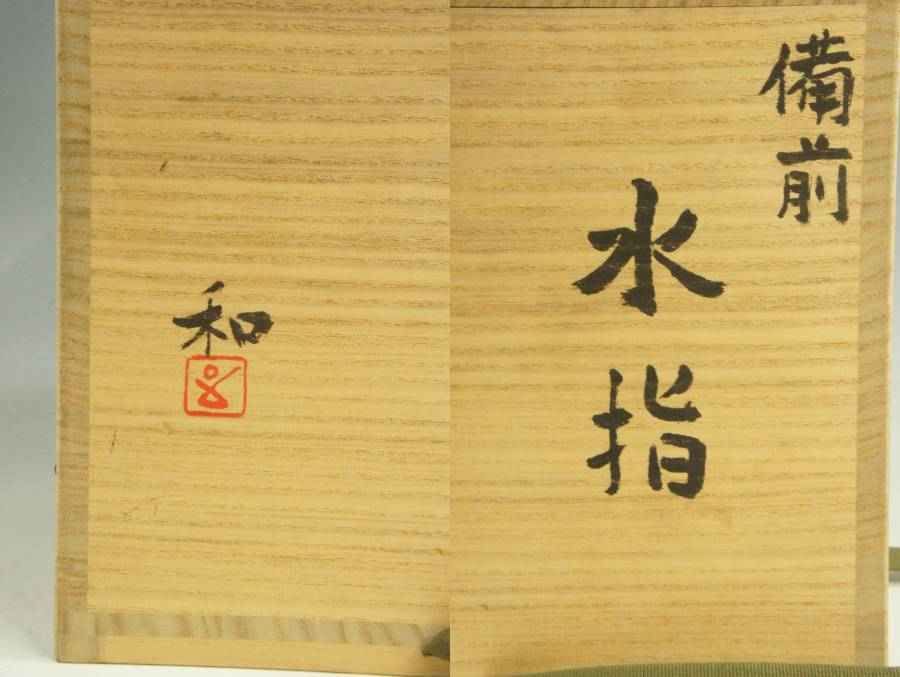 備前
水指
和